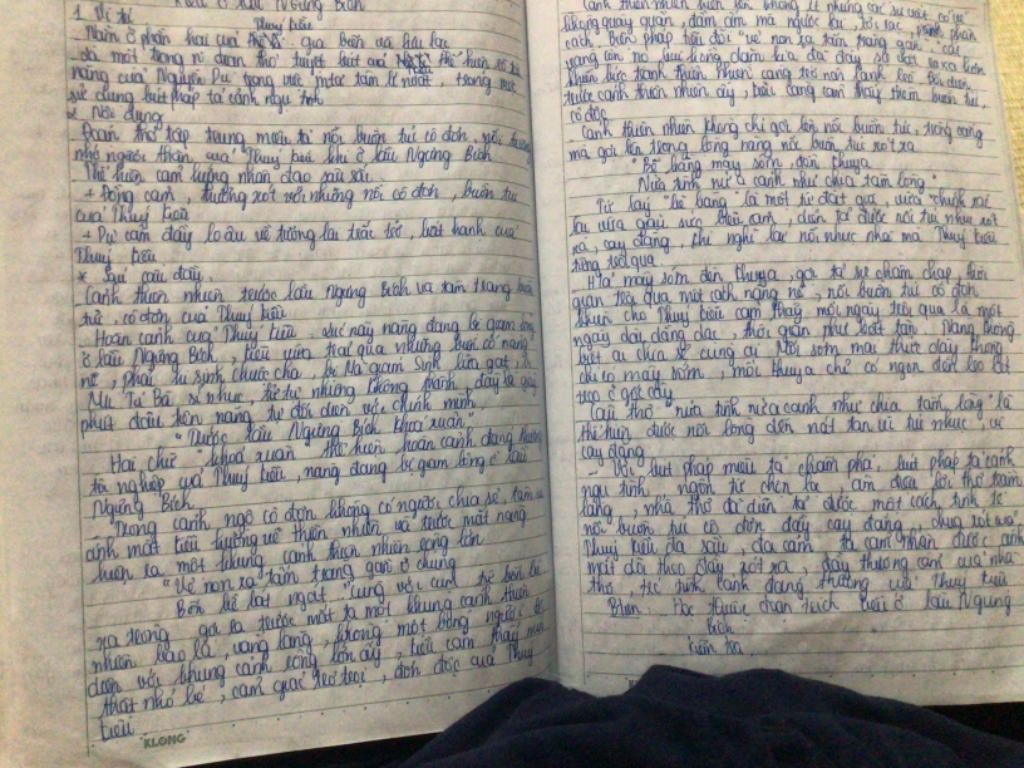 Kiều ở lầu Ngưng Bích
1. Vị trí
Thuý Kiều
Nằm ở phần hai của gia biến và lưu lạc
là một trong n đoạn thơ tuyệt bút thể hiện rõ tài
năng của Nguyễn Du trong việc miêu tả tâm lí nhân vật, trong việc
sử dụng bút pháp tả cảnh ngụ tình
2. Nội dung
Đoạn thơ tập trung miêu tả nỗi buồn tủi cô đơn, nỗi
nhớ người thân của Thuý Kiều khi ở lầu Ngưng Bích
Thể hiện cảm hứng nhân đạo sâu sắc
+ Đồng cảm, thương xót với những nỗi cô đơn, buồn tủi
của Thuý Kiều
+ Dự cảm đầy lo âu về tương lai trắc trở, bất hạnh của
Thuý Kiều
* Sáu câu đầu
Cảnh thiên nhiên trước lầu Ngưng Bích và tâm trạng buồn
tủi, cô đơn của Thuý Kiều
Hoàn cảnh của Thuý Kiều: lúc này nàng đang bị giam lỏng
ở lầu Ngưng Bích, Kiều vừa trải qua những
phải hi sinh chuộc cha, bị Mã Giám Sinh lừa gạt, bị
Mụ Tú Bà sỉ nhục, tự tử nhưng không thành, đây là giây
phút đầu tiên nàng tự đối diện với chính mình.
"Trước lầu Ngưng Bích khoá xuân"
Hai chữ "khoá xuân" thể hiện hoàn cảnh đáng thương
tội nghiệp của Thuý Kiều, nàng đang bị giam lỏng ở lầu
Ngưng Bích
Trong cảnh ngộ cô đơn không có người chia sẻ, tâm sự
ánh mắt Kiều hướng về thiên nhiên và trước mắt nàng
hiện ra một khung cảnh thiên nhiên rộng lớn
"Vẻ non xa tấm trăng gần ở chung
Bốn bề bát ngát" cùng với cụm từ bốn bề
xa trông gợi ra trước mắt ta một khung cảnh thiên
nhiên bao la, vắng lặng, không một bóng người đối
diện với khung cảnh rộng lớn ấy, Kiều cảm thấy mình
thật nhỏ bé, cảm giác trơ trọi, đơn độc của Thuý
Kiều
KLONG
Cảnh thiên nhiên hiện lên không ít những các sự vật có vẻ
không quây quần, đầm ấm mà ngược lại, rời rạc, phân
cách. Biện pháp tiểu đối "vẻ non xa tấm trăng gần" "cát
vàng cồn nọ, bụi hồng dặm kia đã đẩy sự vật ra xa
khiến bức tranh thiên nhiên càng trở nên lạnh lẽo
trước cảnh thiên nhiên ấy, Kiều càng cảm thấy thêm buồn tủi,
cô độc
Cảnh thiên nhiên không chỉ gợi lên nỗi buồn tủi, trống vắng
mà gợi lên trong lòng nàng nỗi buồn tủi xót xa
"Bẽ bàng mây sớm, đèn khuya
Nửa tình nửa cảnh như chia tấm lòng"
Từ láy "bẽ bàng" là một từ đắt giá, vừa chính xác
lại vừa giàu sức biểu cảm, diễn tả được nỗi tủi nhục xót
xa, cay đắng, khi nghĩ lại nỗi nhục nhã mà Thuý Kiều
từng trải qua
H/ả mây sớm đèn khuya, gợi tả sự chậm chạp, thời
gian trôi qua một cách nặng nề, nỗi buồn tủi cô đơn
khiến cho Thuý Kiều cảm thấy mỗi ngày trôi qua là một
ngày dài dằng dặc, thời gian như bất tận. Nàng không
biết ai chia sẻ cùng ai. Mỗi sớm mai thức dậy không
chỉ có mây sớm, mỗi khuya chỉ có ngọn đèn leo lét
treo ở góc cây
Câu thơ "nửa tình nửa cảnh như chia tấm lòng" là
thể hiện được nỗi lòng đến nát tan vì tủi nhục, vì
cay đắng
- Với bút pháp miêu tả chấm phá, bút pháp tả cảnh
ngụ tình, ngôn từ chọn lọc, âm điệu lời thơ trầm
lắng, nhà thơ đã diễn tả được một cách tinh tế
nỗi buồn tủi cô đơn đầy cay đắng, chua xót
Thuý Kiều đa sầu, đa cảm ta cảm nhận được ánh
mắt dõi theo đầy xót xa, đầy thương cảm của nhà
thơ, trước tình cảnh đáng thương của Thuý Kiều
Học thuộc đoạn trích Kiều ở lầu Ngưng
Bích
Kiểm tra